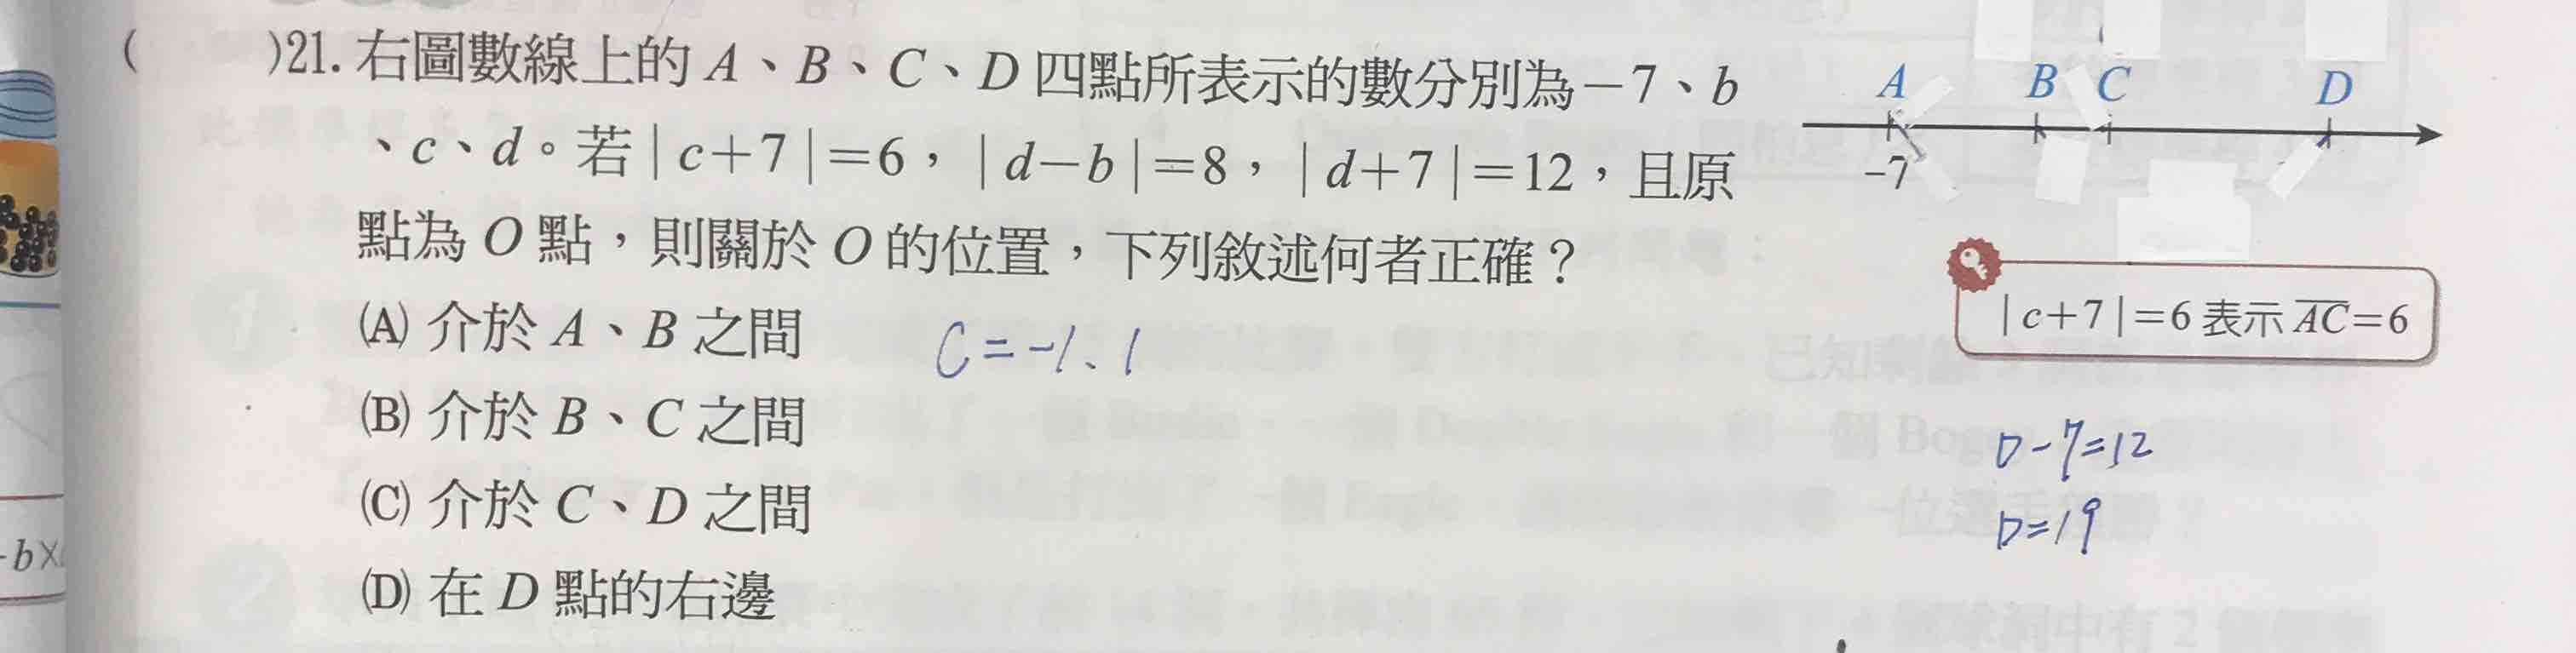 ( )21. 右圖數線上的 A、B、C、D 四點所表示的數分別為－7、b
、c、d。若|c＋7|＝6，|d－b|＝8，|d＋7|＝12，且原
點為 O 點，則關於 O 的位置，下列敘述何者正確？
(A) 介於 A、B 之間
(B) 介於 B、C 之間
(C) 介於 C、D 之間
(D) 在 D 點的右邊
A B C D
-7
|c+7|=6 表示 AC=6
C=-1、1
D-7=12
D=19
-b×